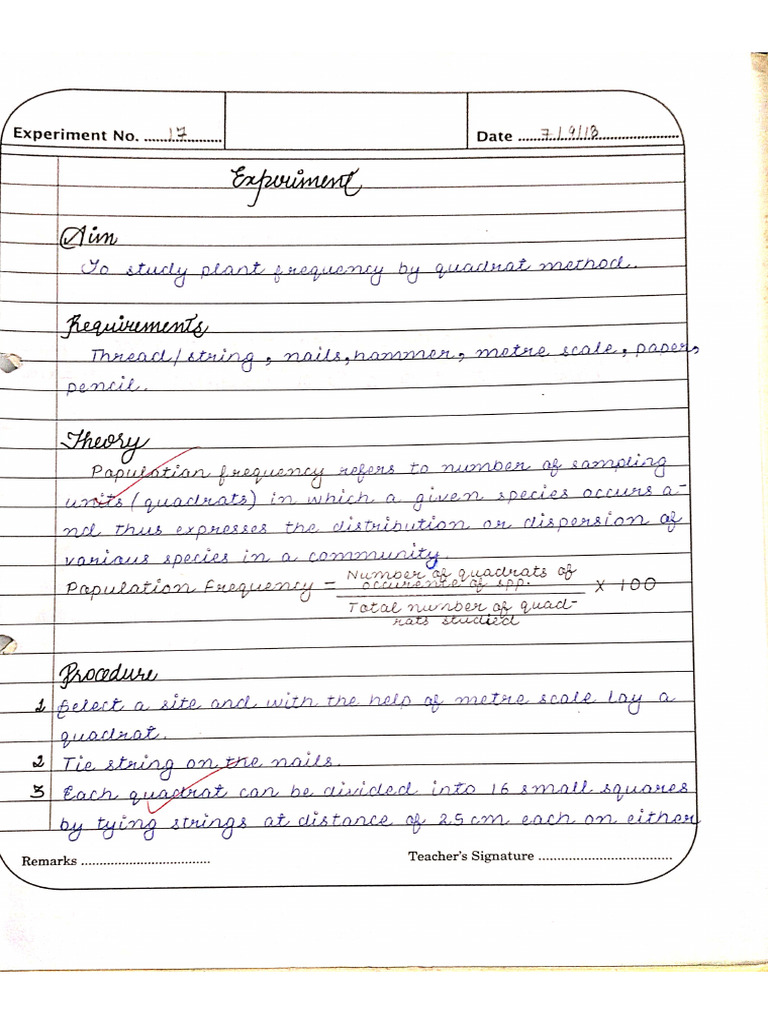 Experiment No. ..........17..........
Date ......7/9/18......
Experiment
Aim
To study plant frequency by quadrat method.
Requirements
Thread/string, nails, hammer, metre scale, paper,
pencil.
Theory
Population frequency refers to number of sampling
units (quadrats) in which a given species occurs a-
nd thus expresses the distribution or dispersion of
various species in a community.
Population Frequency = Number of quadrats of
occurence of spp.
x 100
Total number of quad-
rats studied
Procedure
1 Select a site and with the help of metre scale lay a
quadrat.
2 Tie string on the nails.
3 Each quadrat can be divided into 16 small squares
by tying strings at distance of 25cm each on either
Remarks ..................................
Teacher's Signature ...................................